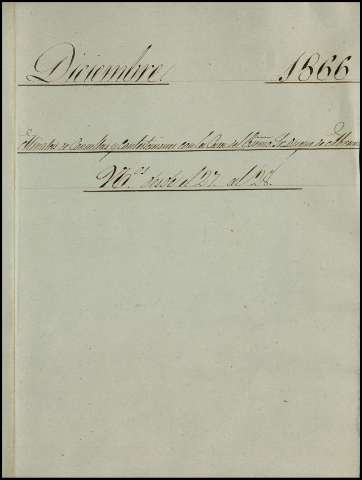 Diciembre 1866
Minutas de Consultas y Contestaciones con la Casa del Excmo. Sr. Duque de
N.os desde el 27. al 28.